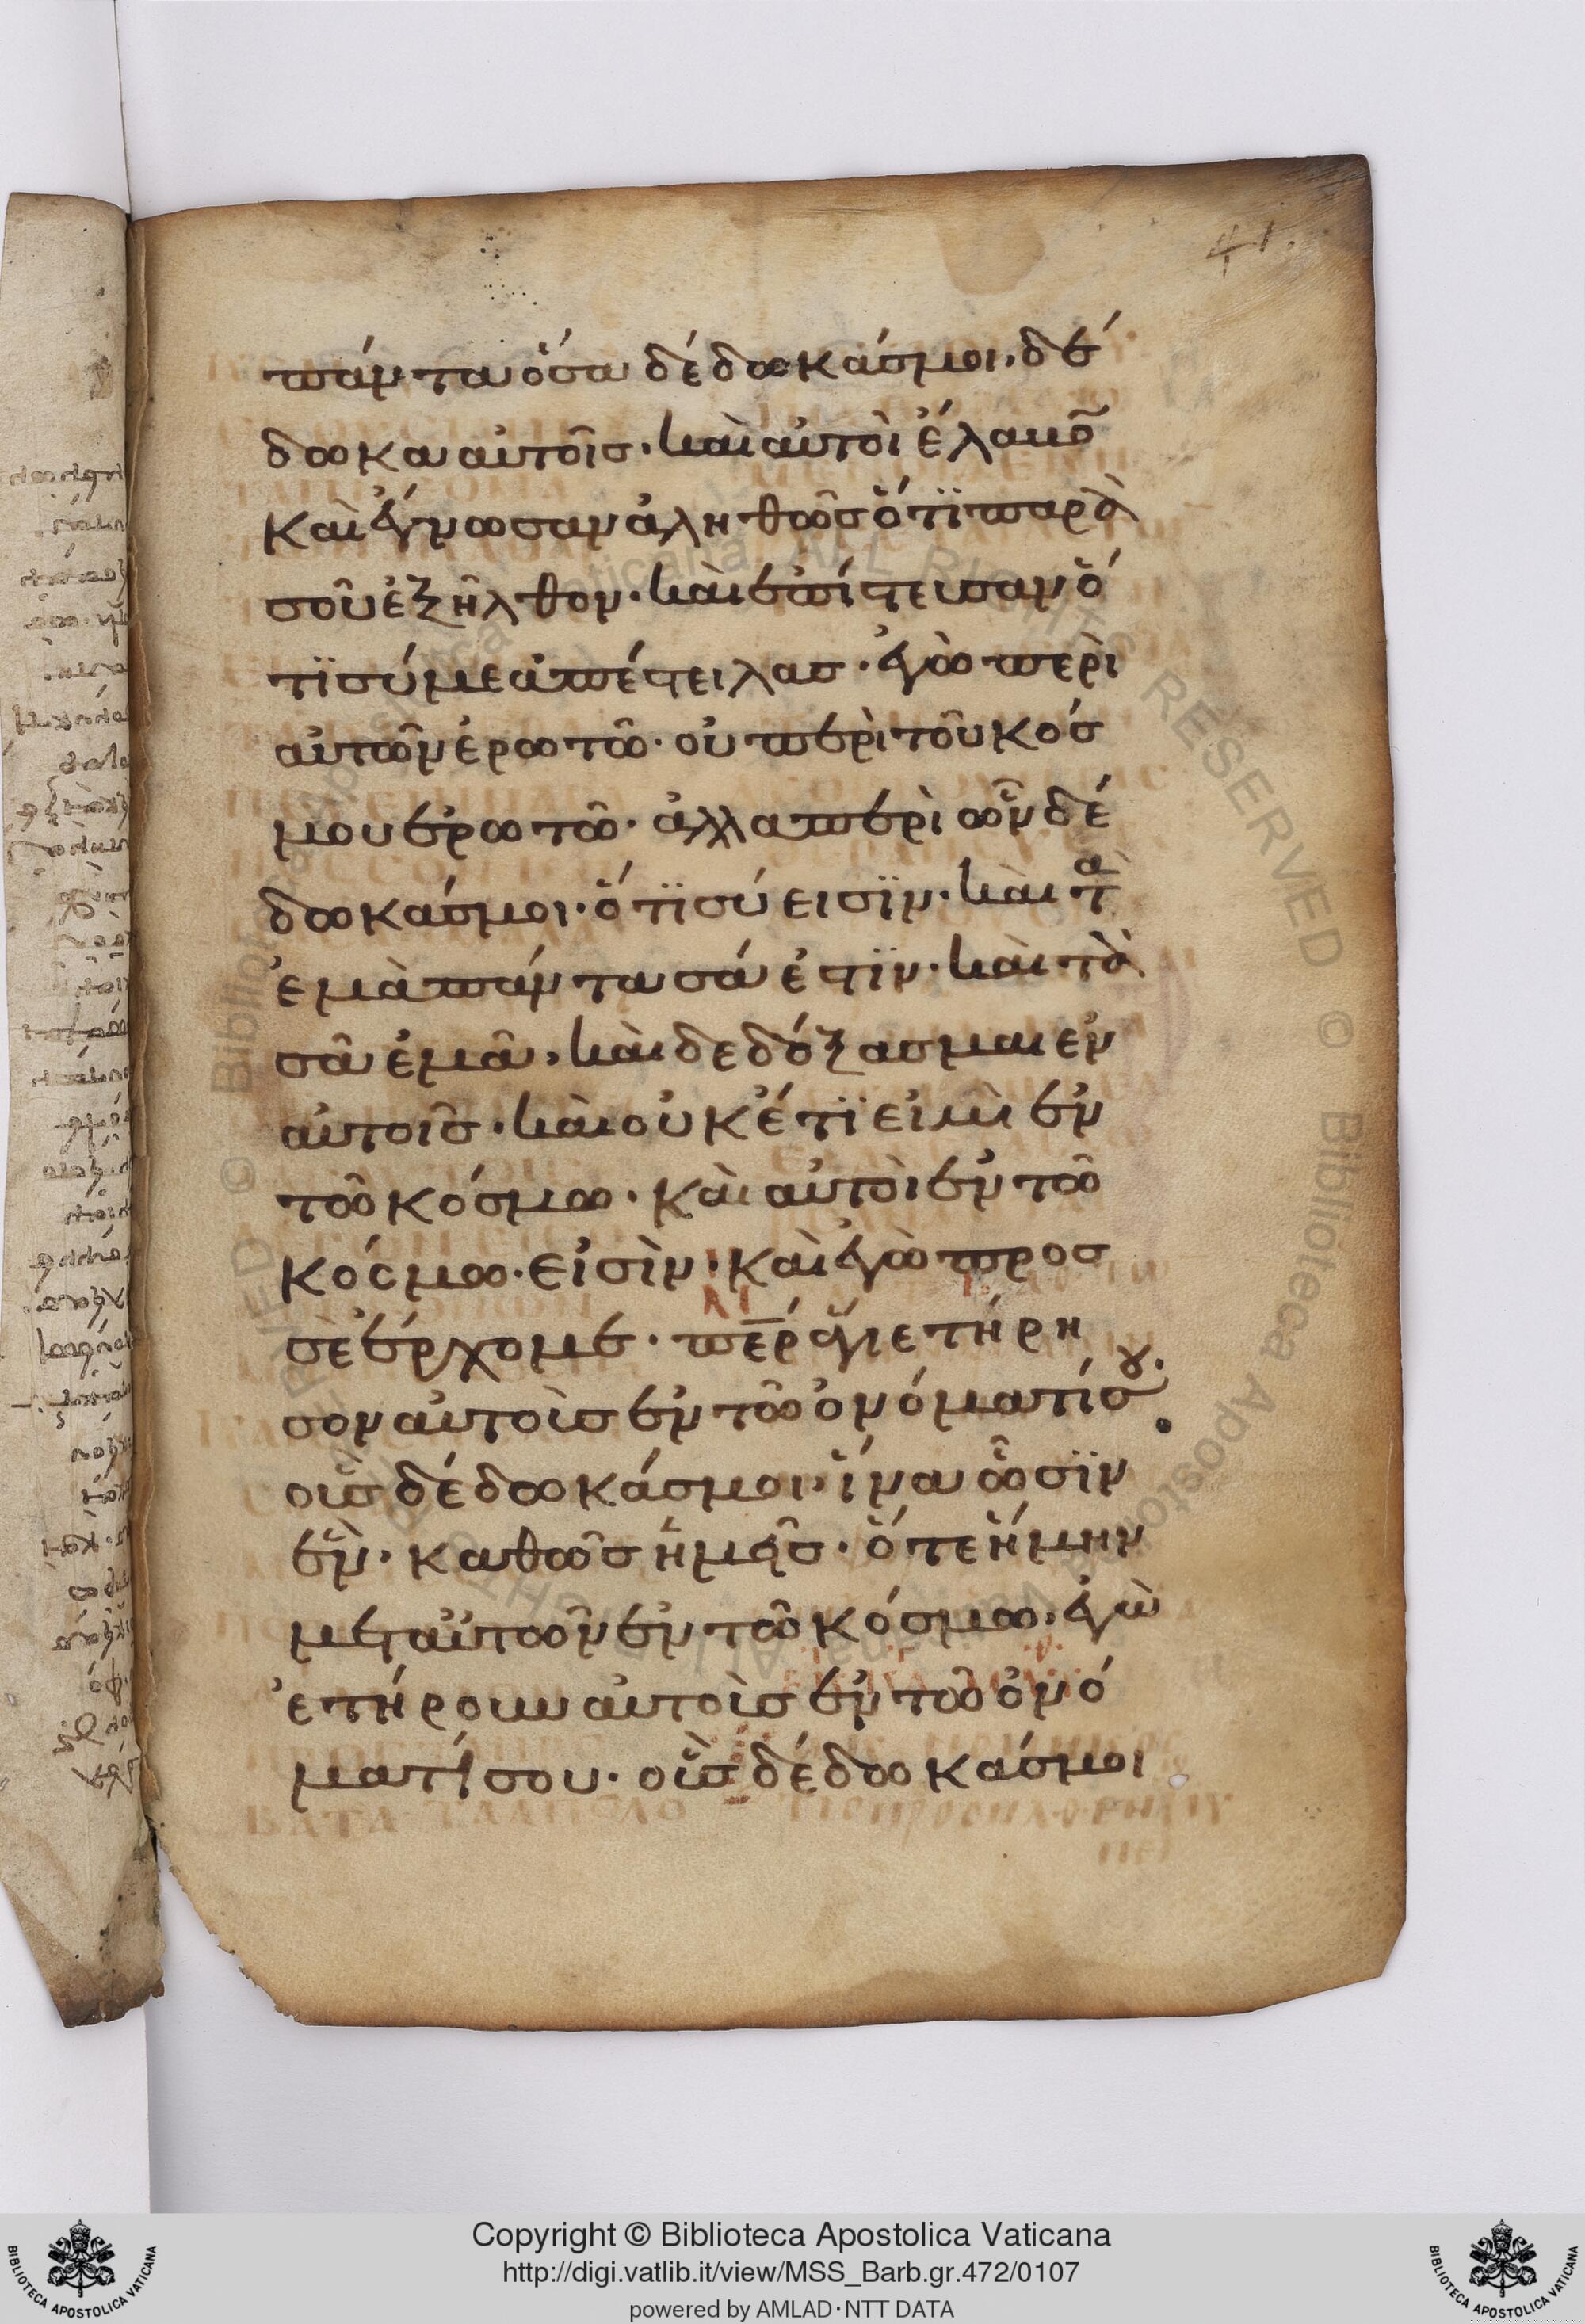 41.
πάντα ὅσα δέδωκάσ μοι. δέ
δωκα αὐτοῖσ. καὶ αὐτοὶ ἔλαβο̃
καὶ ἔγνωσαν ἀληθῶσ ὅτϊ παρὰ
σοῦ ἐξῆλθον. καὶ ἐπίστευσαν ὅ
τϊ σύ με ἀπέστειλασ. ἐγὼ περὶ
αὐτῶν ἐρωτῶ. οὐ περὶ τοῦ κόσ
μου ἐρωτῶ. ἀλλα περὶ ὧν δέ
δωκάσ μοι. ὅτϊ σύ εισϊν. καὶ τα
ἐμὰ πάντα σά ἐστϊν. καὶ τὰ
σᾶ ἐμᾶ. καὶ δεδόξασμαι εν
αὐτοῖσ. καὶ οὐκέτϊ εἰμὶ ἐν
τῶ κόσμω. καὶ αὐτοὶ ἐν τῶ
κόσμω. εἰσὶν. καὶ ἐγὼ προσ
σὲ ἔρχομε. πε̅ρ ἅγιε τήρη
σον αὐτοὺσ ἐν τῶ ὀνόματί σου.
οὓσ δέδωκάσ μοι. ἵνα ὦσϊν
ἓν. καθῶσ ἡμεῖσ. ὅτε ἤμην
μετ αὐτῶν ἐν τῶ κόσμω. ἐγὼ
ἐτήρουν αὐτοὺσ ἐν τῶ ὀνό
ματί σου. οὓσ δέδωκάσ μοι
Copyright © Biblioteca Apostolica Vaticana
http://digi.vatlib.it/view/MSS_Barb.gr.472/0107
powered by AMLAD·NTT DATA
BIBLIOTECA APOSTOLICA VATICANA
BIBLIOTECA APOSTOLICA VATICANA